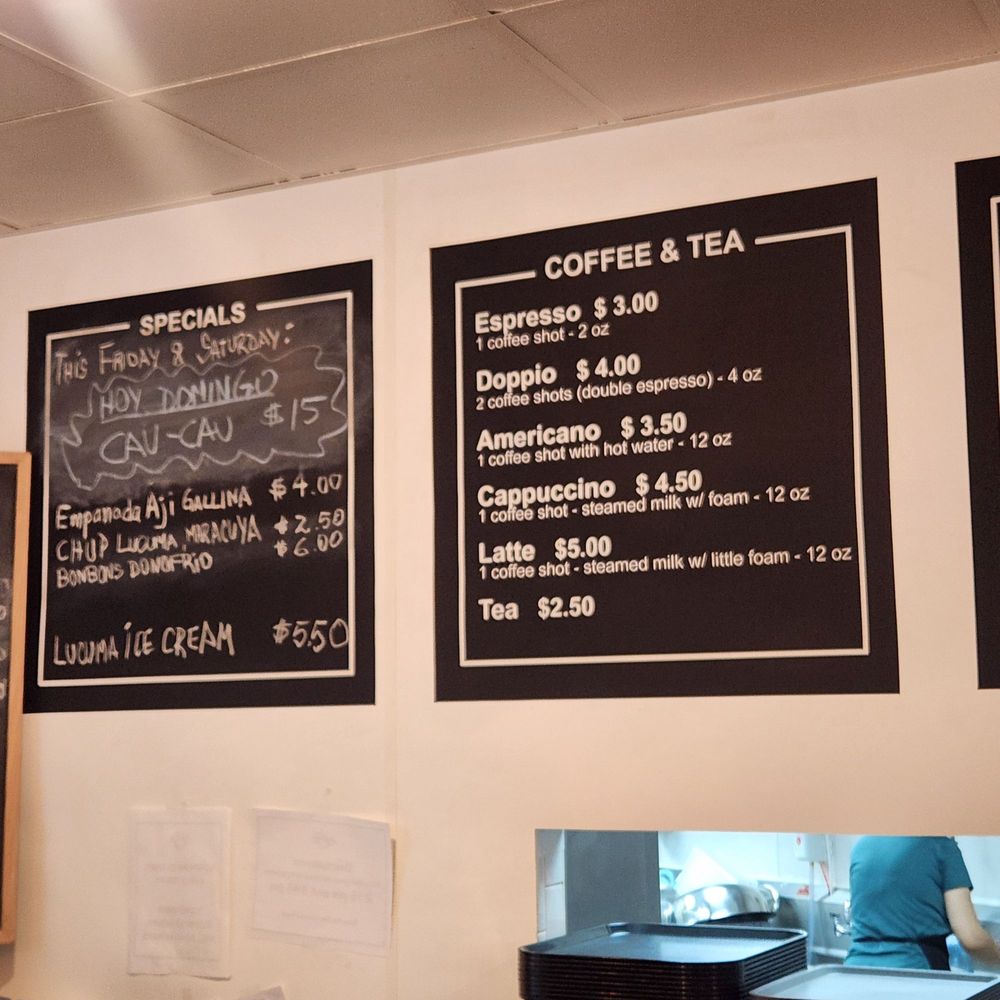 SPECIALS
THIS FRIDAY & SATURDAY:
HOY DOMINGO
CAU-CAU $15
Empanada Aji GALLINA $4.00
CHUP LUCUMA, MARACUYA $2.50
BONBONS DONOFRIO $6.00
LUCUMA ICE CREAM $5.50
COFFEE & TEA
Espresso $ 3.00
1 coffee shot - 2 oz
Doppio $ 4.00
2 coffee shots (double espresso) - 4 oz
Americano $ 3.50
1 coffee shot with hot water - 12 oz
Cappuccino $ 4.50
1 coffee shot - steamed milk w/ foam - 12 oz
Latte $5.00
1 coffee shot - steamed milk w/ little foam - 12 oz
Tea $2.50